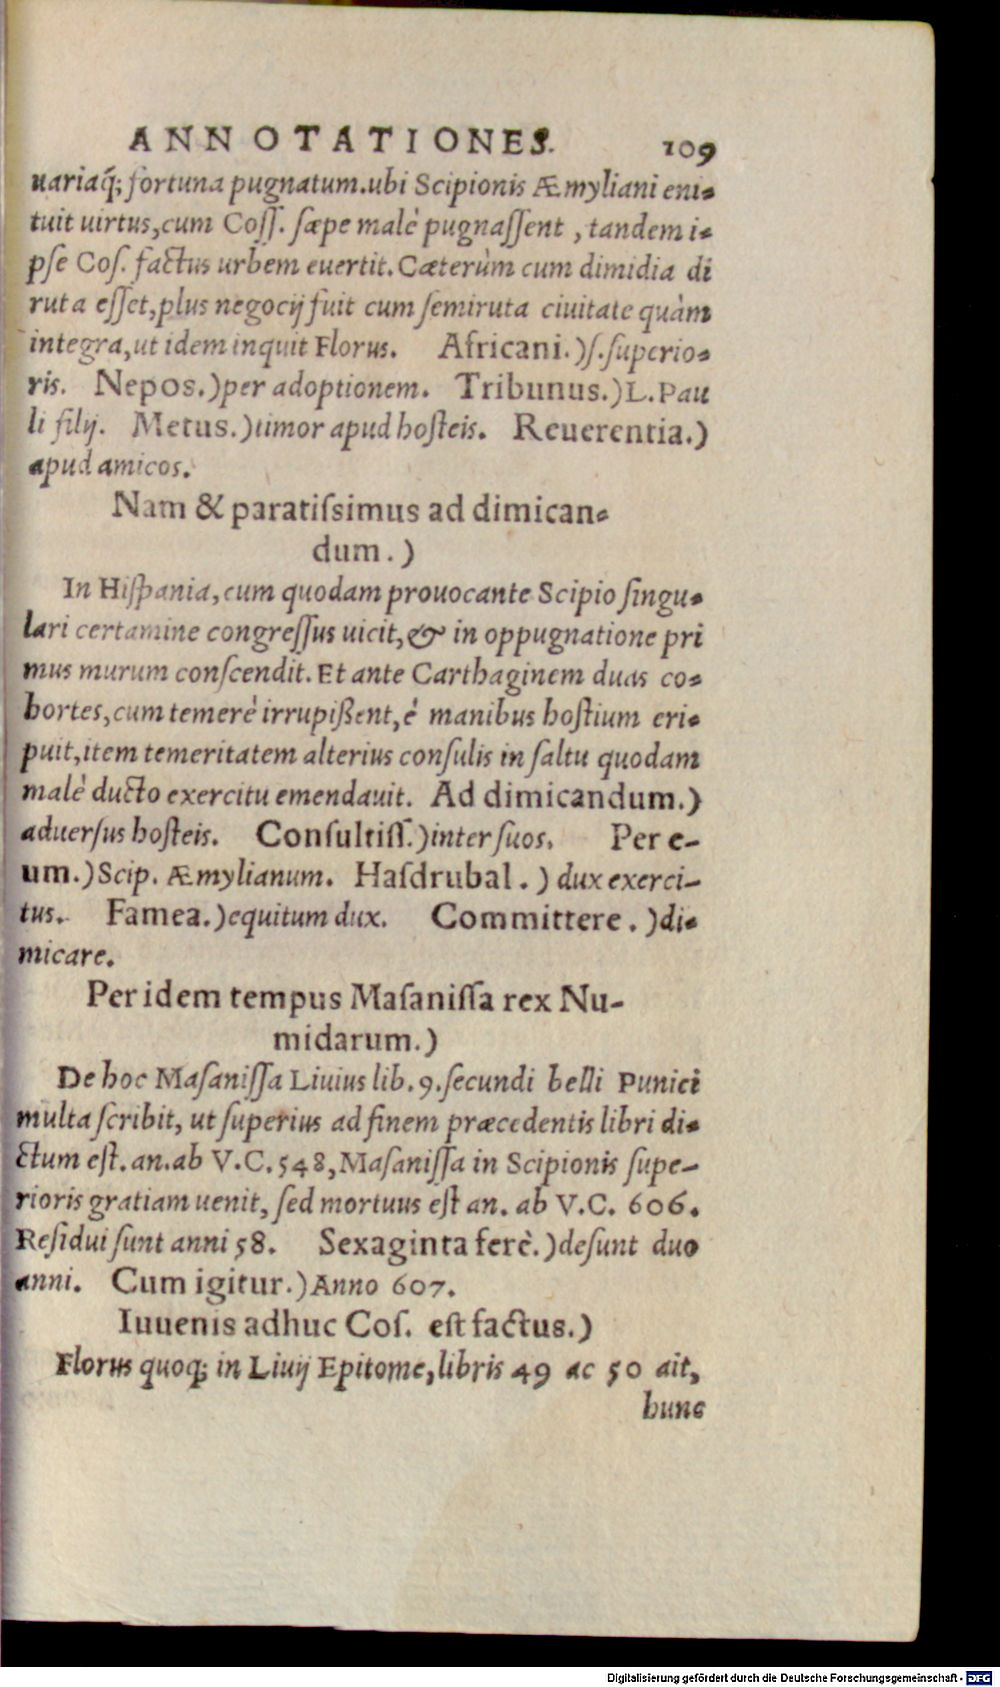 ANNOTATIONES. 109
uariaq́; fortuna pugnatum.ubi Scipionis Æmyliani eni-
tuit uirtus,cum Coſſ. ſæpe malè pugnaſſent , tandem i-
pſe Coſ. factus urbem euertit. Cæterùm cum dimidia di
ruta eſſet,plus negocij fuit cum ſemiruta ciuitate quàm
integra,ut idem inquit Florus. Africani.)ſ.ſuperio-
ris. Nepos.)per adoptionem. Tribunus.)L.Pau
li filij. Metus.)timor apud hoſteis. Reuerentia.)
apud amicos.
Nam & paratiſsimus ad dimican-
dum.)
In Hiſpania,cum quodam prouocante Scipio ſingu-
lari certamine congreſſus uicit,& in oppugnatione pri
mus murum conſcendit. Et ante Carthaginem duas co-
hortes,cum temerè irrupißent,è manibus hoſtium eri-
puit,item temeritatem alterius conſulis in ſaltu quodam
malè ducto exercitu emendauit. Ad dimicandum.)
aduerſus hoſteis. Conſultiſſ.)inter ſuos. Per e-
um.)Scip. Æmylianum. Haſdrubal.) dux exerci-
tus. Famea.)equitum dux. Committere.)di-
micare.
Per idem tempus Maſaniſſa rex Nu-
midarum.)
De hoc Maſaniſſa Liuius lib.9.ſecundi belli Punici
multa ſcribit, ut ſuperius ad finem præcedentis libri di-
ctum eſt. an.ab V.C.548,Maſaniſſa in Scipionis ſupe-
rioris gratiam uenit, ſed mortuus eſt an. ab V.C. 606.
Reſidui ſunt anni 58. Sexaginta ferè.)deſunt duo
anni. Cum igitur.)Anno 607.
Iuuenis adhuc Coſ. eſt factus.)
Florus quoq; in Liuij Epitome,libris 49 ac 50 ait,
hunc
Digitalisierung gefördert durch die Deutsche Forschungsgemeinschaft - DFG